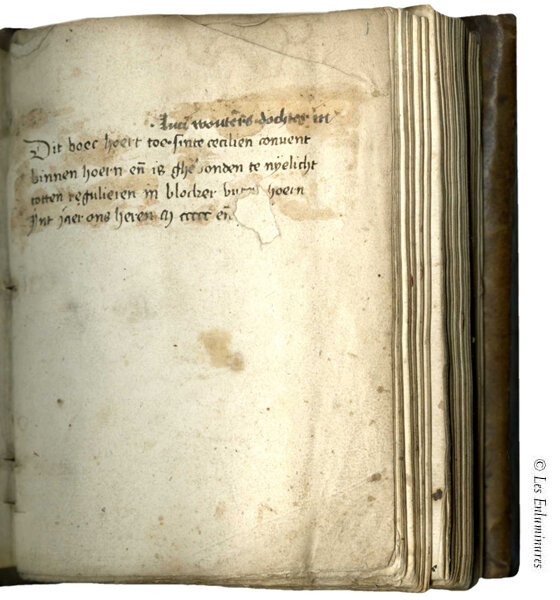 Luci wouters dochter in
Dit boec hoert toe sinte cecilien convent
binnen hoern en̄ is ghebonden te nyelicht
totten regulieren in blocker buten hoern
Int jaer ons heren M ccccc en̄
© Les Enluminures